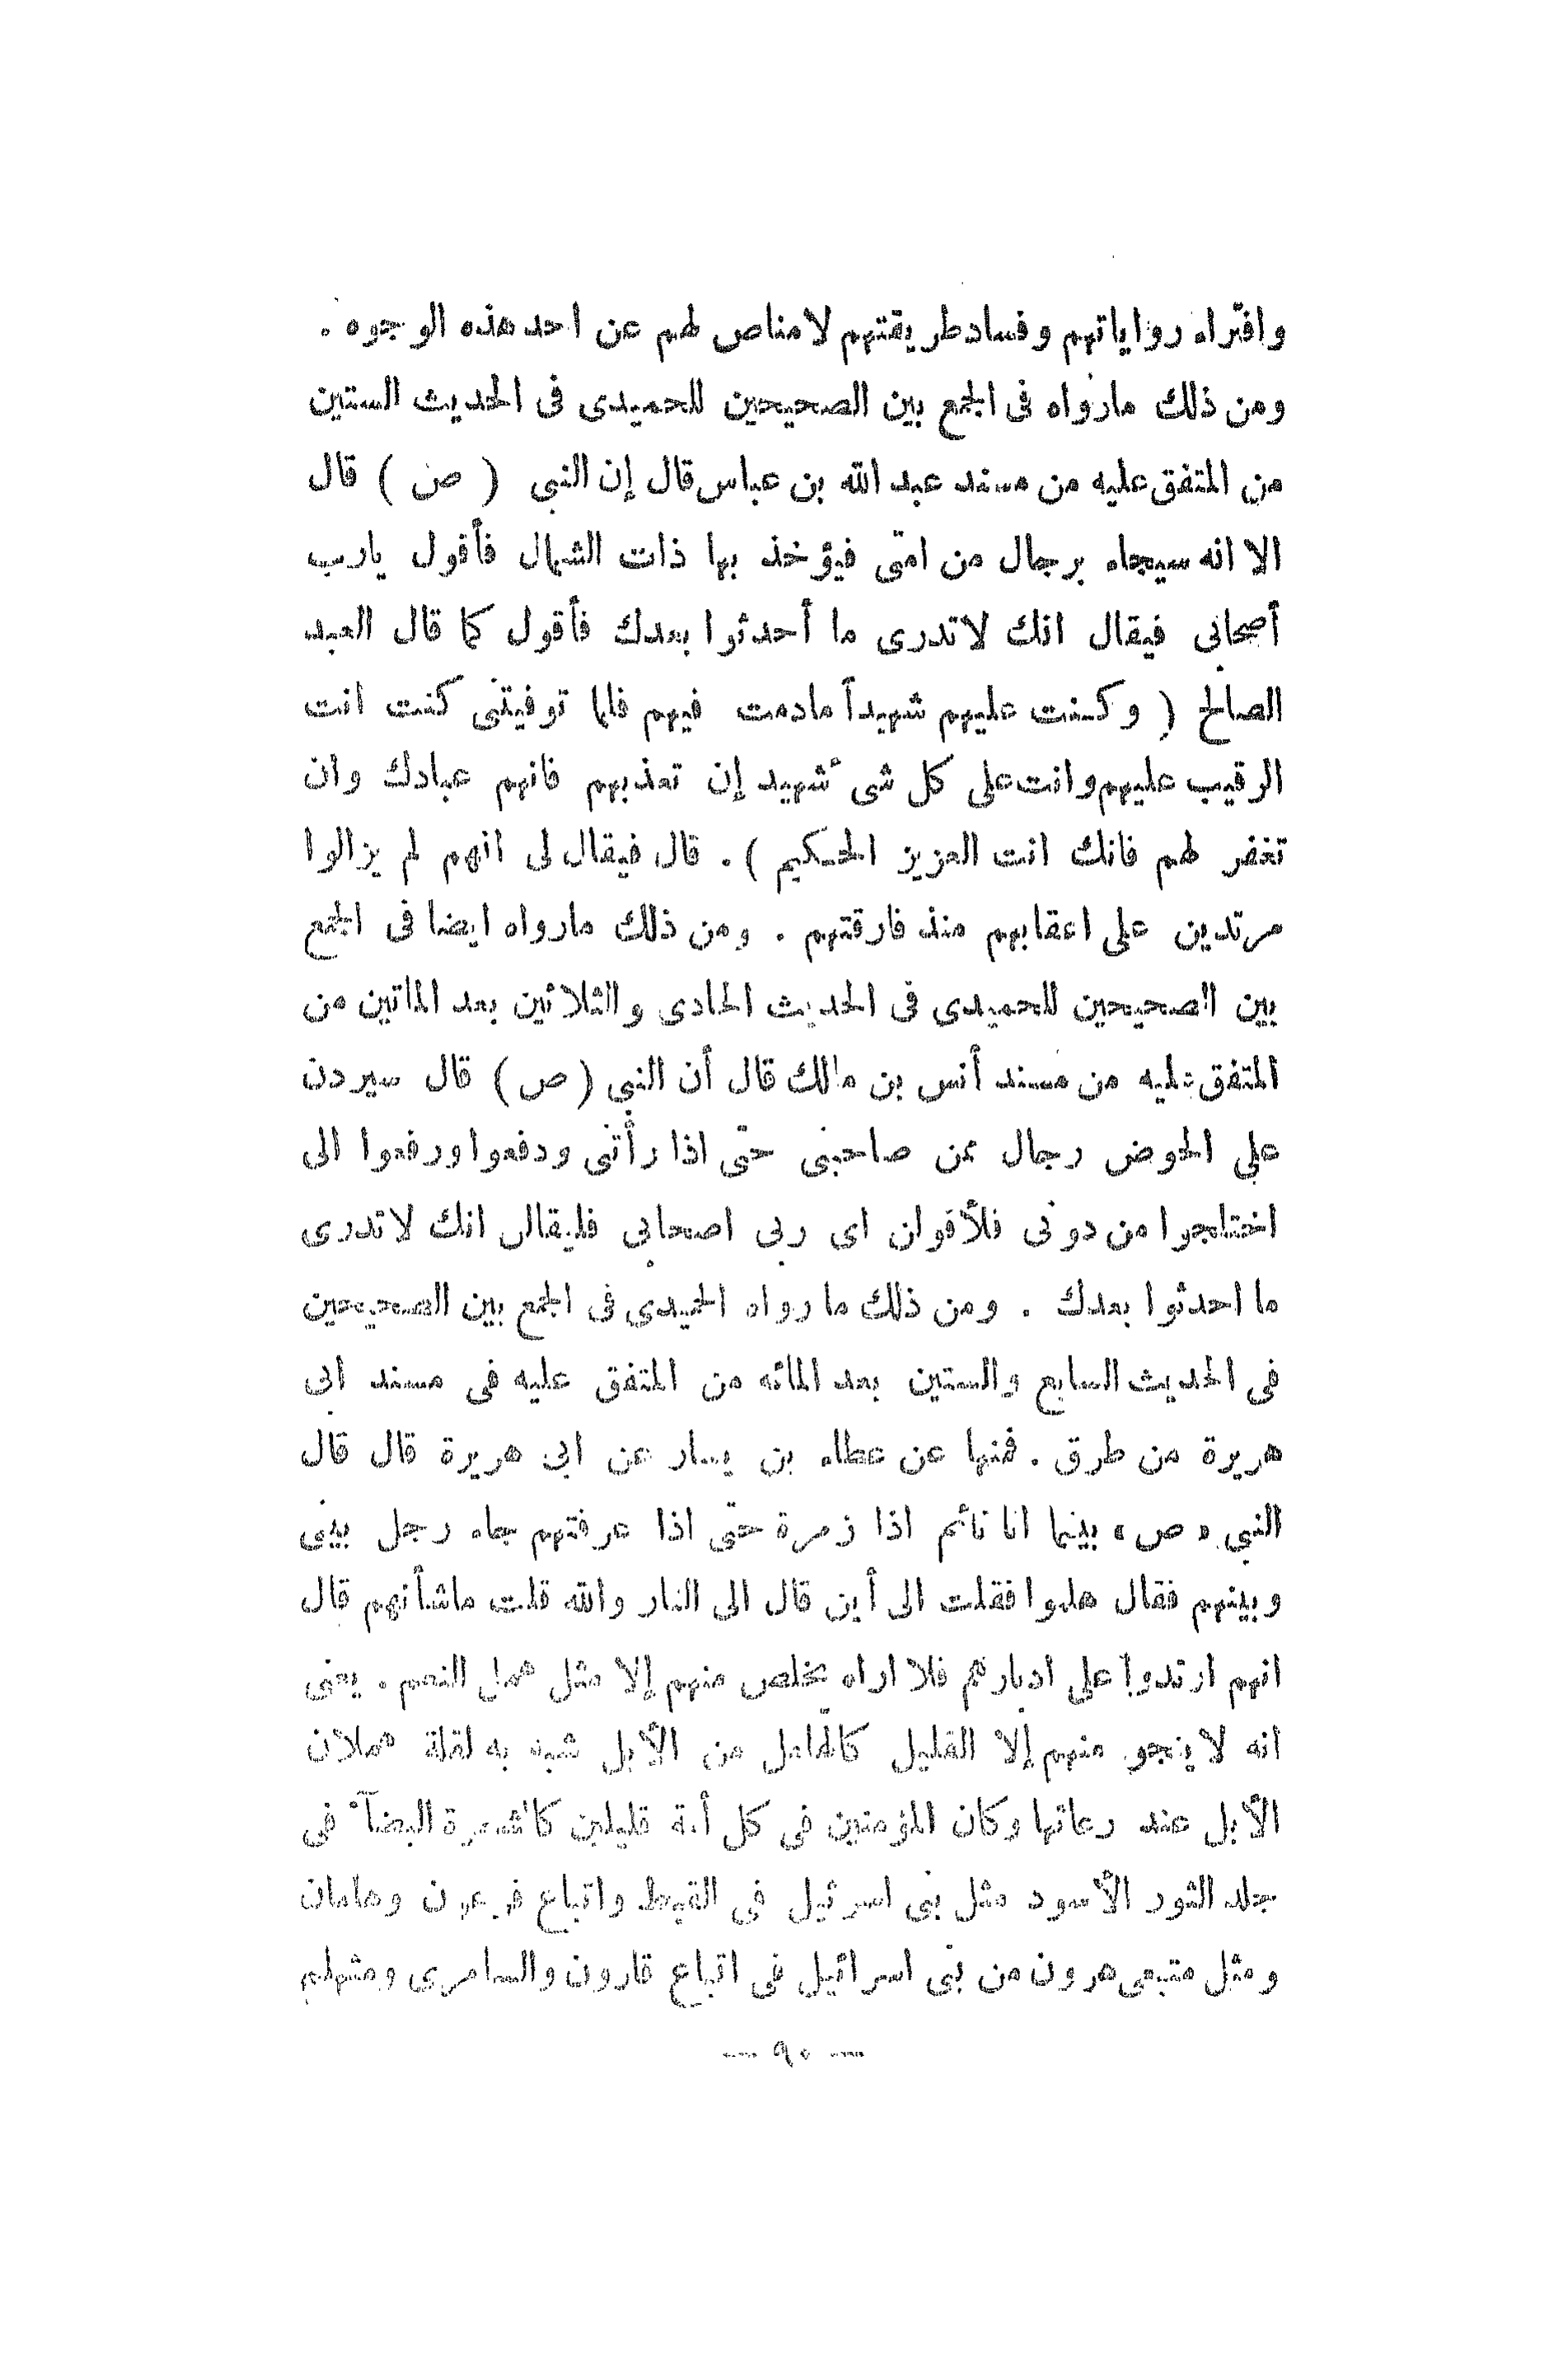 وافتراء رواياتهم وفساد طريقتهم لامناص لهم عن احد هذه الوجوه .
ومن ذلك مارواه فى الجمع بين الصحيحين للحميدى فى الحديث الستين
من المتفق عليه من مسند عبد الله بن عباس قال إن النبي ( ص ) قال
الا انه سيجاء برجال من امتى فيؤخذ بها ذات الشمال فأقول يارب
أصحابى فيقال انك لاتدرى ما أحدثوا بعدك فأقول كما قال العبد
الصالح ( وكنت عليهم شهيداً مادمت فيهم فلما توفيتنى كنت انت
الرقيب عليهم وانت على كل شىء شهيد إن تعذبهم فانهم عبادك وان
تغفر لهم فانك انت العزيز الحكيم ) . قال فيقال لى انهم لم يزالوا
مرتدين على اعقابهم منذ فارقتهم . ومن ذلك مارواه ايضا فى الجمع
بين الصحيحين للحميدى فى الحديث الحادى والثلاثين بعد المأتين من
المتفق عليه من مسند أنس بن مالك قال أن النبي ( ص ) قال سيردن
على الحوض رجال ممن صاحبنى حتى اذا رأتنى ودفعوا ورفعوا الى
اختلجوا من دونى فلأقولن اى ربى اصحابى فليقالن انك لاتدرى
ما احدثوا بعدك . ومن ذلك ما رواه الحميدى فى الجمع بين الصحيحين
فى الحديث السابع والستين بعد المائه من المتفق عليه فى مسند ابى
هريرة من طرق . فمنها عن عطاء بن يسار عن ابى هريرة قال قال
النبي «ص» بينما انا نائم اذا زمرة حتى اذا عرفتهم جاء رجل بينى
وبينهم فقال هلموا فقلت الى أين قال الى النار والله قلت ماشأنهم قال
انهم ارتدوا على ادبارهم فلا اراه يخلص منهم إلا مثل همل النعم . يعنى
انه لا ينجو منهم إلا القليل كالهامل من الأبل شبه به لقلة هملان
الأبل عند رعاتها وكان المؤمنين فى كل أمة قليلين كالشعرة البضآء فى
جلد الثور الأسود مثل بنى اسرئيل فى القبط واتباع فرعون وهامان
ومثل متبعى هرون من بنى اسرائيل فى اتباع قارون والسامرى ومثهلم
— ٩٠ —